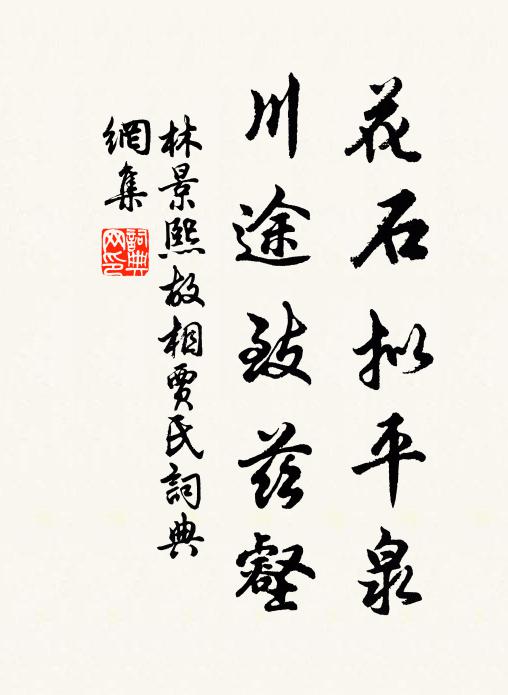 花石拟平泉
川途致茲壑
林景熙故相賈氏詞典
網集
詞典
网印